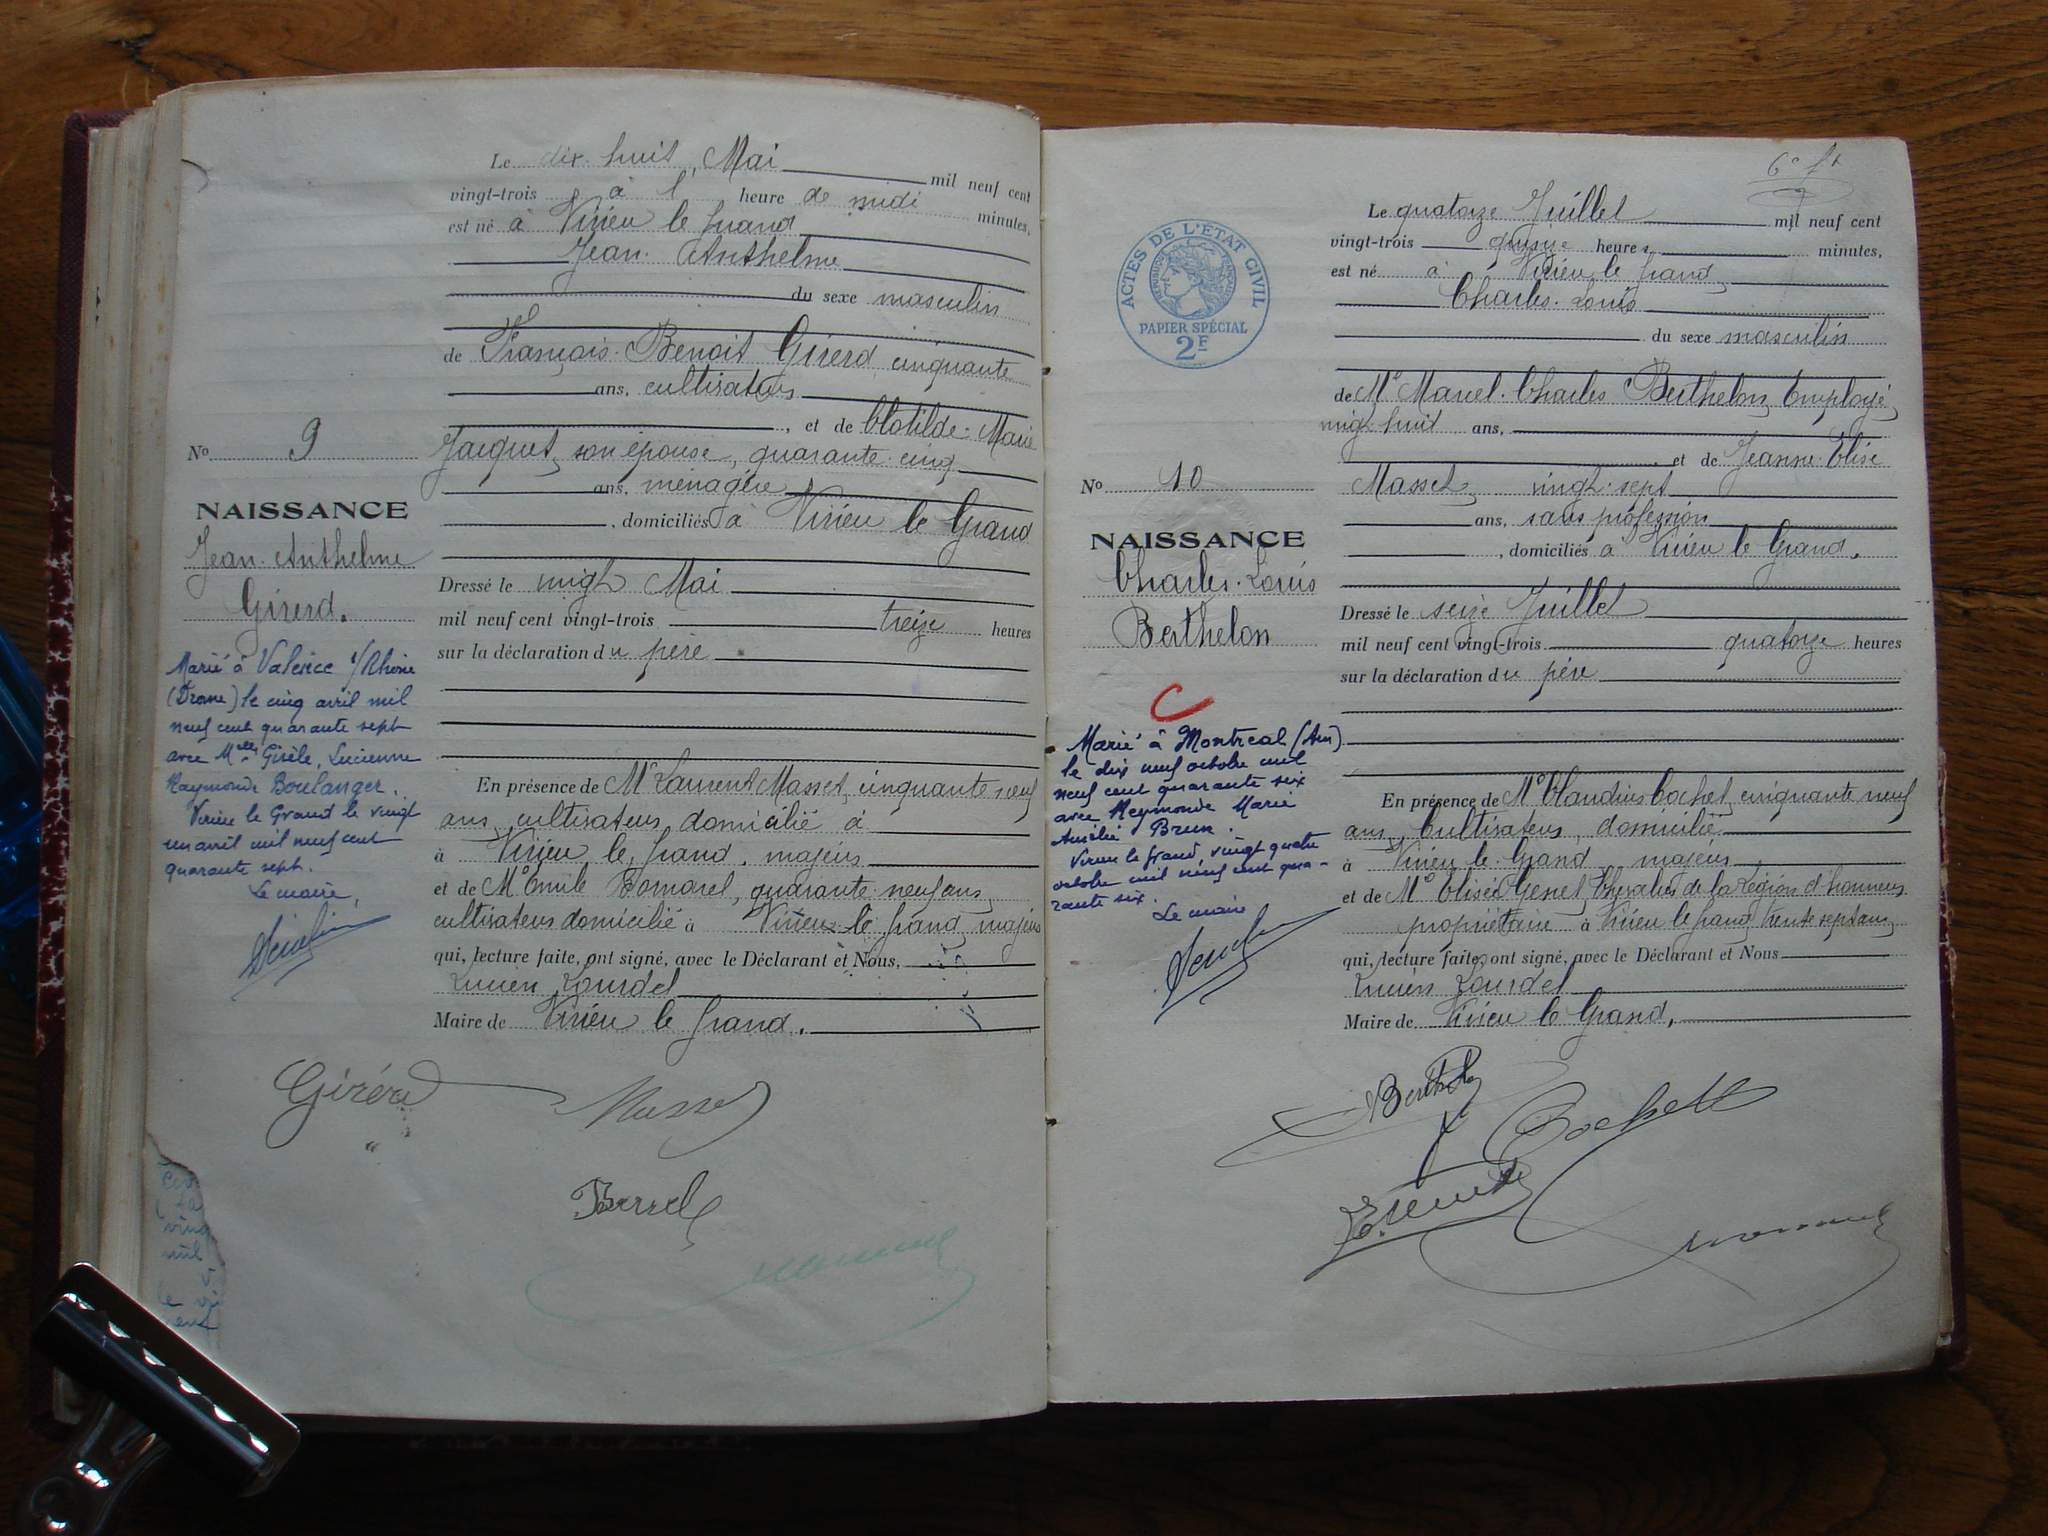 Le dix huit Mai mil neuf cent
vingt-trois à l' heure de midi minutes,
est né à Virieu le Grand
Jean Anthelme
du sexe masculin
de François Benoit Girerd cinquante
ans, cultivateur
, et de Clotilde Marie
Jacquet, son épouse, quarante cinq
ans, ménagère
, domiciliés à Virieu le Grand
Dressé le vingt Mai
mil neuf cent vingt-trois treize heures
sur la déclaration du père
En présence de Mr Laurent Masset, cinquante neuf
ans, cultivateur domicilié à
à Virieu le Grand, majeur
et de Mr Emile Bomarel, quarante neuf ans,
cultivateur domicilié à Virieu le Grand, majeur
qui, lecture faite, ont signé, avec le Déclarant et Nous,
Lucien Lourdel
Maire de Virieu le Grand.
No 9
NAISSANCE
Jean Anthelme
Girerd.
Marié à Valence s/Rhône
(Drome) le cinq avril mil
neuf cent quarante sept
avec Melle Gisèle, Lucienne
Raymonde Boulanger.
Virieu le Grand le vingt
un avril mil neuf cent
quarante sept.
Le maire,
Girérd
Masset
vinq
mil
6e ft
ACTES DE L'ETAT CIVIL
PAPIER SPÉCIAL
2F
Le quatorze Juillet mil neuf cent
vingt-trois quinze heures minutes,
est né à Virieu le Grand
Charles Louis
du sexe masculin
de Mr Marcel Charles Berthelon, Employé,
vingt huit ans,
et de Jeanne Elise
Masset, vingt sept
ans, sans profession
, domiciliés à Virieu le Grand.
Dressé le seize Juillet
mil neuf cent vingt-trois quatorze heures
sur la déclaration du père
En présence de Mr Claudius Cochet, cinquante neuf
ans, Cultivateur, domicilié
à Virieu le Grand, majeur
et de Mr Elisée Genet, Chevalier de la Légion d'honneur
propriétaire à Virieu le Grand, trente sept ans,
qui, lecture faite, ont signé, avec le Déclarant et Nous
Lucien Lourdel
Maire de Virieu le Grand.
No 10
NAISSANCE
Charles Louis
Berthelon
Marié à Montreal (Ain)
le dix neuf octobre mil
neuf cent quarante six
avec Reymonde Marie
Amélie Brun.
Virieu le Grand, vingt quatre
octobre mil neuf cent qua-
rante six.
Le maire
Cochet